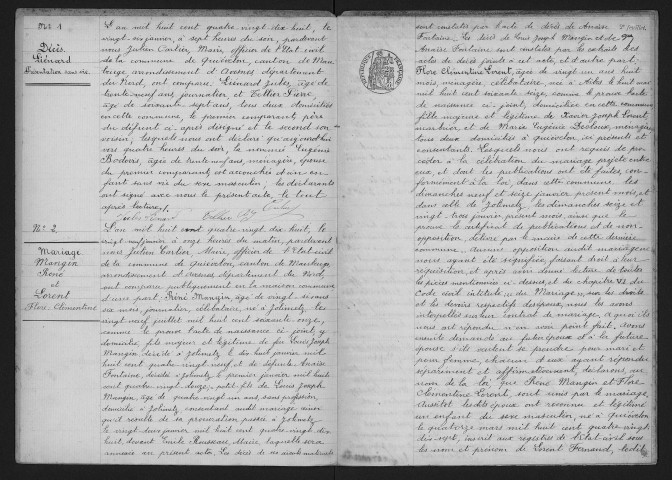 N° 1
Décès.
Liénard
Présentation sans vie.
L'an mil huit cent quatre-vingt-dix huit, le
vingt-six janvier, à sept heures du soir, pardevant
nous Julien Carlier, Maire, officier de l'Etat civil
de la commune de Quiévelon, canton de Mau
beuge, arrondissement d'Avesnes, département
du Nord, ont comparu Liénard Jules, âgé de
trente neuf ans, journalier et Tellier
âgé de soixante sept ans, tous deux domiciliés
en cette commune, le premier comparant père
du défunt ci après désigné et le second son
voisin, lesquels nous ont déclaré qu'aujourd'hui
vers quatre heures du soir, la nommée Eugénie
âgée de trente neuf ans, ménagère, épouse
du premier comparant, est accouchée d'un en-
fant sans vie du sexe masculin, les déclarants
ont signé avec nous le présent acte, le tout
après lecture.
N° 2.
Mariage
Mangin
René
et
Lorent
Flore, Clémentine
L'an mil huit cent quatre vingt dix huit, le
vingt neuf janvier à onze heures du matin, pardevant
nous Julien Carlier, Maire, officier de l'Etat-civil
de la commune de Quiévelon, canton de Maubeuge,
arrondissement d'Avesnes, département du Nord,
ont comparu publiquement en la maison commune
d'une part, René Mangin, âgé de vingt-six ans
six mois, journalier, célibataire, né à Jolimetz, le
vingt neuf juillet mil huit cent soixante onze,
comme le prouve l'acte de naissance ci joint, y
domicilié, fils majeur et légitime de feu Louis Joseph
Mangin décédé à Jolimetz le dix huit janvier mil
huit cent quatre vingt neuf, et de défunte Anaïse
Fontaine, décédée à Jolimetz, le premier janvier mil huit
cent quatre vingt douze, petit fils de Louis Joseph
Mangin, âgé de quatre vingt un ans, sans profession,
domicilié à Jolimetz, consentant audit mariage ainsi
qu'il résulte de sa procuration passée à Jolimetz
le vingt-deux janvier mil huit cent quatre-vingt-dix
huit, devant Emile Maire, laquelle sera
annexée au présent acte. Les décès de ses aïeuls maternels
sont constatés par l'acte de décès de Anaïse
Fontaine. Les décès de Louis Joseph Mangin et de
Anaïse Fontaine sont constatés par les extraits des
actes de décès joints à cet acte, et d'autre part,
Flore Clémentine Lorent, âgée de vingt un ans huit
mois, ménagère, célibataire, née à le huit mai
mil huit cent soixante seize, comme le prouve l'acte
de naissance ci joint, domiciliée en cette commune,
fille majeure et légitime de Xavier Joseph Lorent,
marbrier, et de Marie Eugénie ménagère,
tous deux domiciliés à Quiévelon, ici présents et
consentants. Lesquels nous ont requis de pro-
céder à la célébration du mariage projeté entre
eux, et dont les publications ont été faites, con-
formément à la loi, dans cette commune les
dimanches neuf et seize janvier présent mois, et
dans celle de Jolimetz, les dimanches seize et
vingt trois janvier présent mois, ainsi que le
prouve le certificat de publications et de non-
opposition, délivré par le maire de cette dernière
commune. Aucune opposition audit mariage ne
nous ayant été signifiée, faisant droit à leur
réquisition, et après avoir donné lecture de toutes
les pièces mentionnées ci-dessus, et du chapitre VI du
Code civil intitulé du Mariage, sur les droits
et les devoirs respectifs des époux, nous les avons
interpellés sur leur contrat de mariage, à quoi ils
nous ont répondu n'en avoir point fait, nous
avons ensuite demandé au futur époux et à la future
épouse s'ils veulent se prendre pour mari et
pour femme, chacun d'eux ayant répondu
séparément et affirmativement, déclarons, au
nom de la loi que René Mangin et Flore
Clémentine Lorent, sont unis par le mariage,
Aussitôt lesdits époux ont reconnu et légitimé
un enfant du sexe masculin, né à Quiévelon
le quatorze mars mil huit cent quatre-vingt
dix-sept, inscrit aux registres de l'état-civil sous
les nom et prénom de Lorent Fernand, ledit